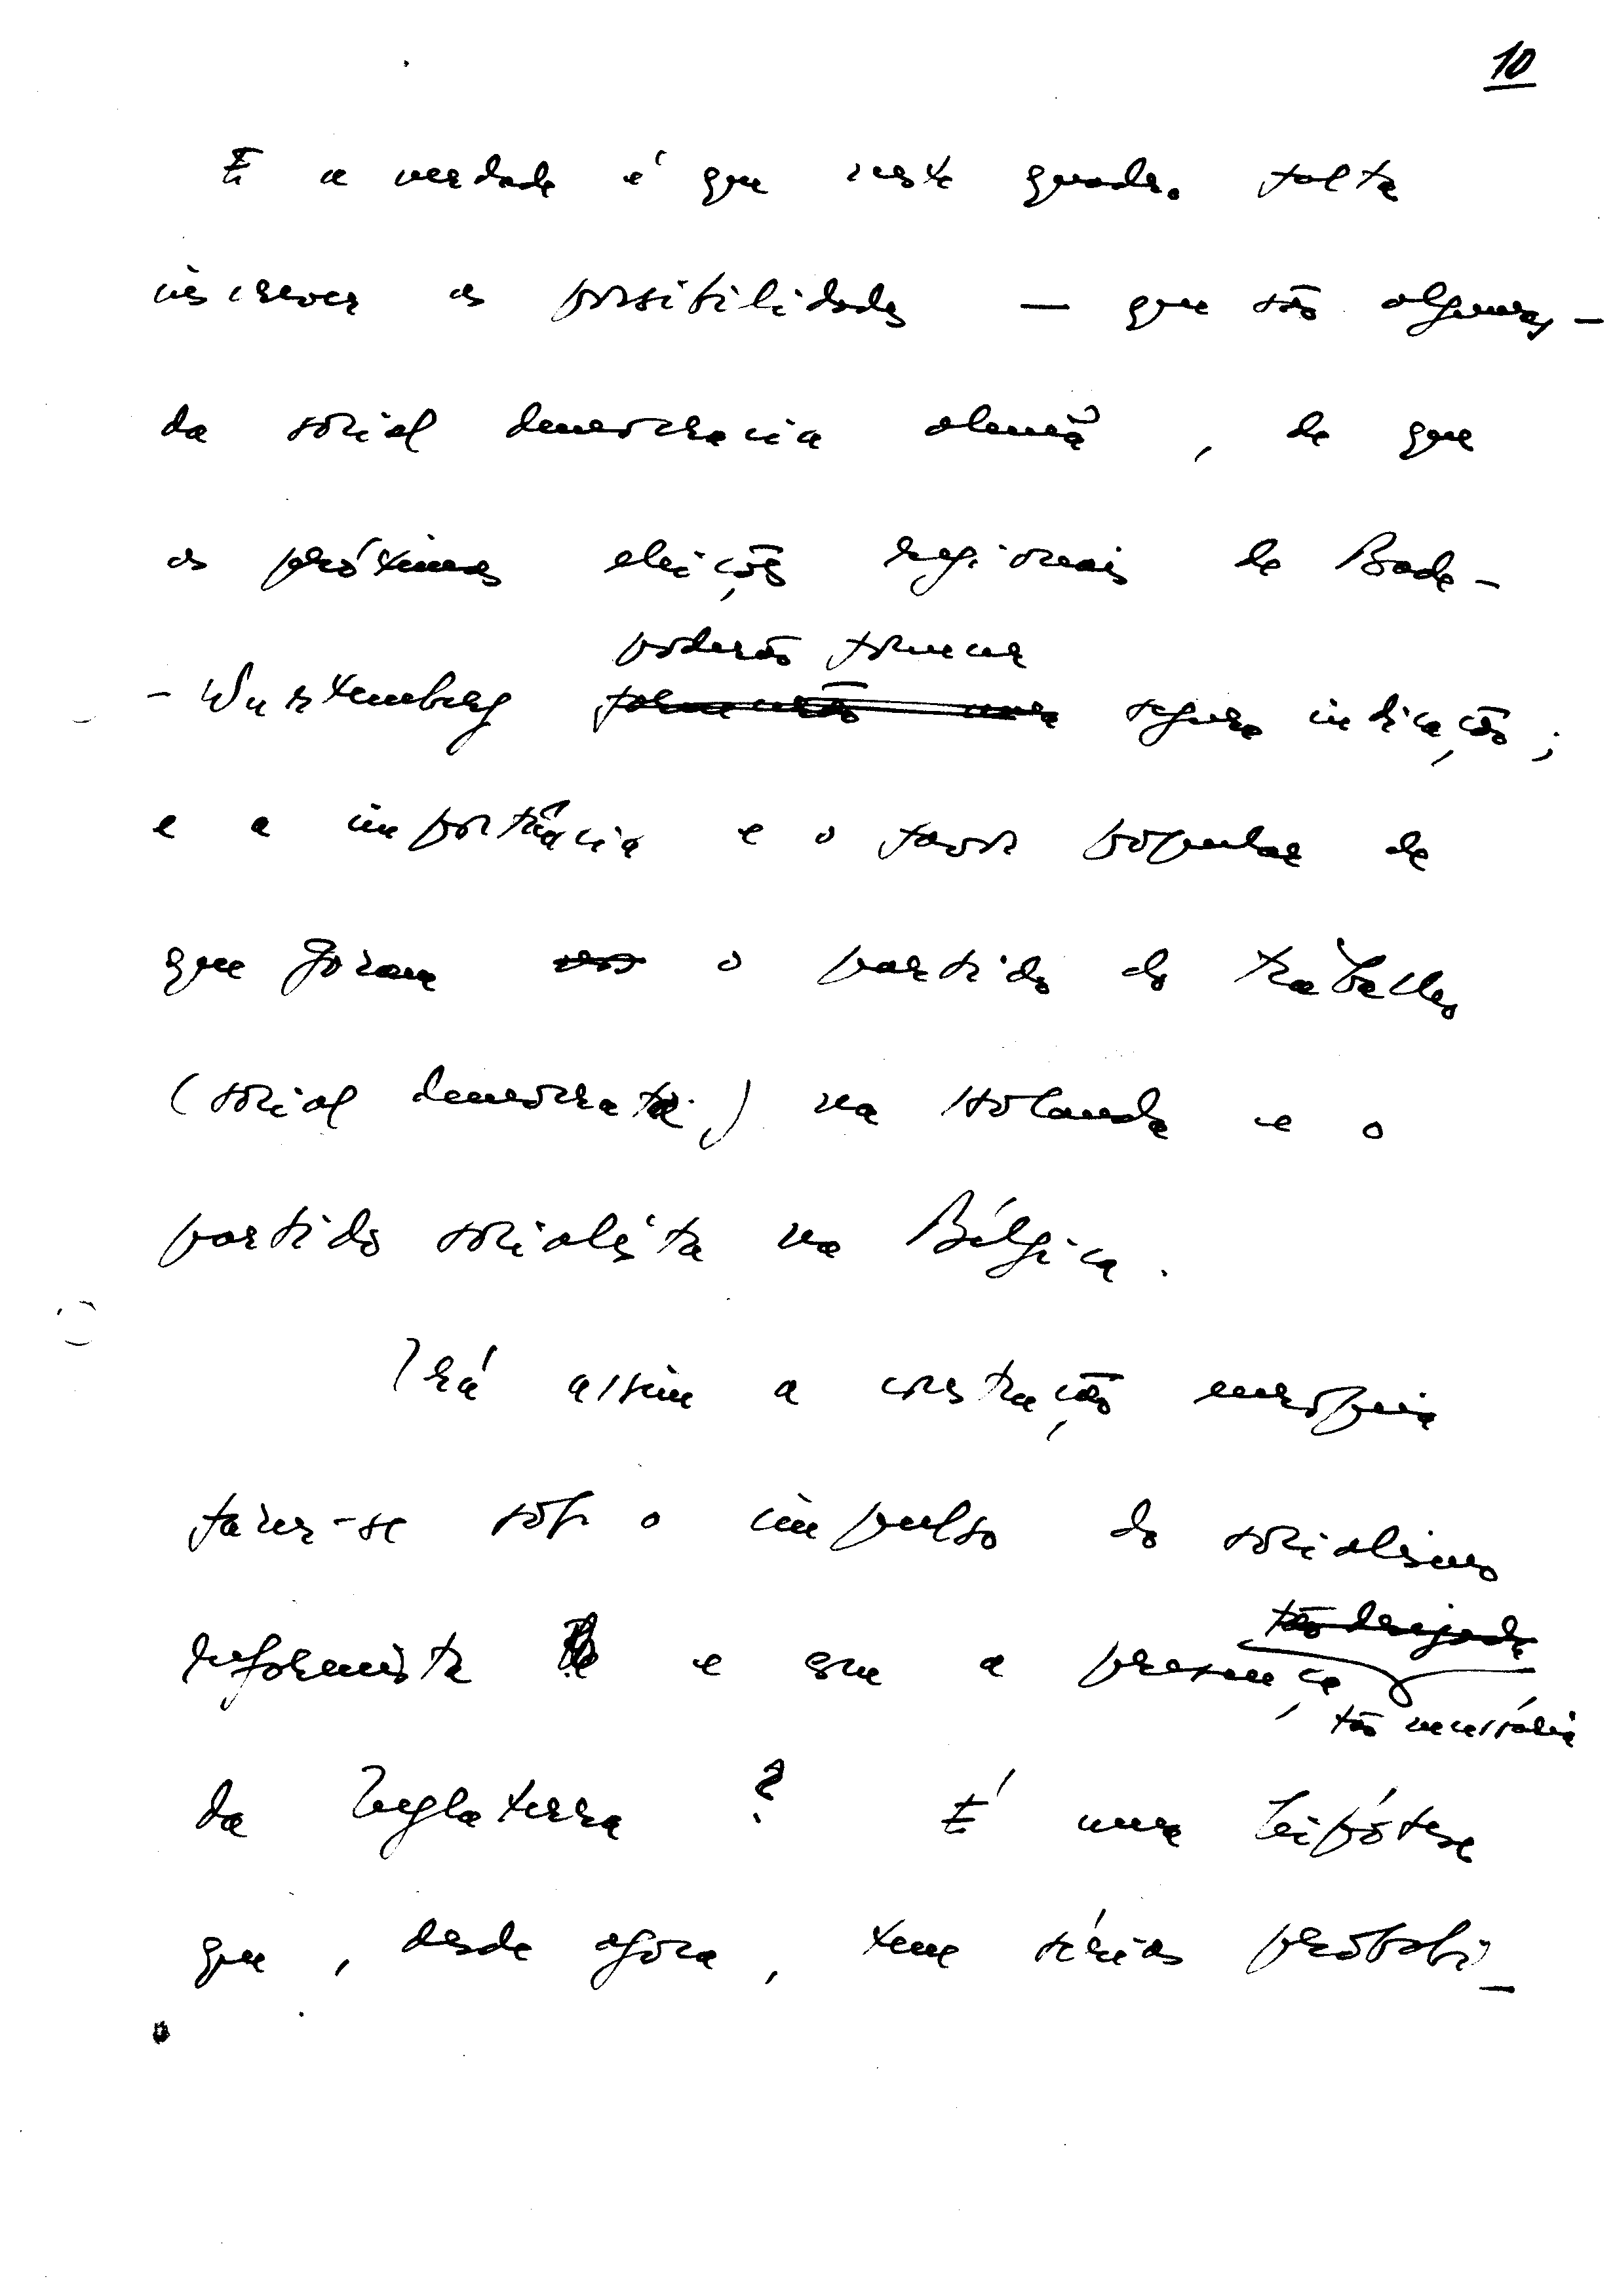 10
E a verdade é que neste quadro falta
inscrever as possibilidades — que são algumas —
da social democracia alemã, de que
as próximas eleições regionais de Bade-
poderão fornecer
- Wurtemberg fornecerão uma segura indicação;
e a importância e o favor popular de
que gozam o partido do trabalho
(social democrata) na Holanda e o
partido socialista na Bélgica.
Irá assim a construção europeia
fazer-se sob o impulso do socialismo
tão desejada
reformista e com a presença
tão necessária
da Inglaterra? É uma hipótese
que, desde agora, tem sérias probabi-